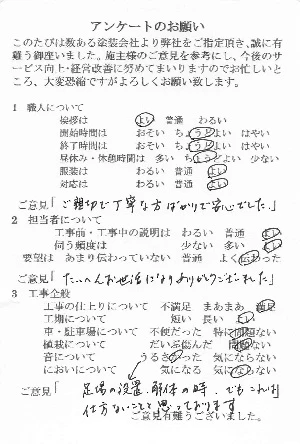 アンケートのお願い
このたびは数ある塗装会社より弊社をご指定頂き、誠に有
難う御座いました。施主様のご意見を参考にし、今後のサ
ービス向上・経営改善に努めてまいりますのでお忙しいと
ころ、大変恐縮ですがよろしくお願い致します。
1 職人について
挨拶は よい 普通 わるい
開始時間は おそい ちょうどよい はやい
終了時間は おそい ちょうどよい はやい
昼休み・休憩時間は 多い ちょうどよい 少ない
服装は わるい 普通 よい
対応は わるい 普通 よい
ご意見「ご親切で丁寧な方ばかりで安心でした。」
2 担当者について
工事前・工事中の説明は わるい 普通 よい
伺う頻度は 少ない 多い よい
要望は あまり伝わっていない 普通 よく伝わった
ご意見「たいへんお世話になりありがとうございました」
3 工事全般
工事の仕上りについて 不満足 まあまあ 満足
工期について 短い 長い よい
車・駐車場について 不便だった 特に問題ない
植栽について だいぶ傷んだ 問題ない
音について うるさかった 気にならない
においについて 気になる 気にならない
ご意見「 足場の設置、解体の時、でもこれは
仕方ないことと思っております
ご意見有難うございました。